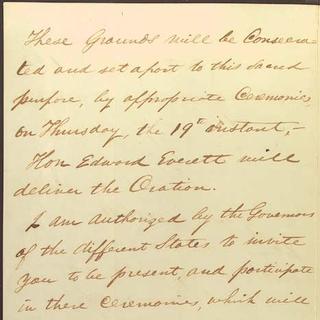 These Grounds will be Consecra-
ted and set apart to this Sacred
purpose, by appropriate Ceremonies,
on Thursday, the 19th instant,-
Hon Edward Everett will
deliver the Oration.
I am authorized by the Governors
of the different States to invite
you to be present, and participate
in these ceremonies, which will